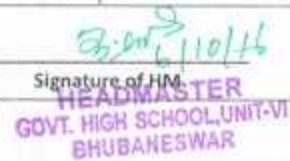 6/10/16
Signature of HM
HEADMASTER
GOVT. HIGH SCHOOL,UNIT-VI
BHUBANESWAR